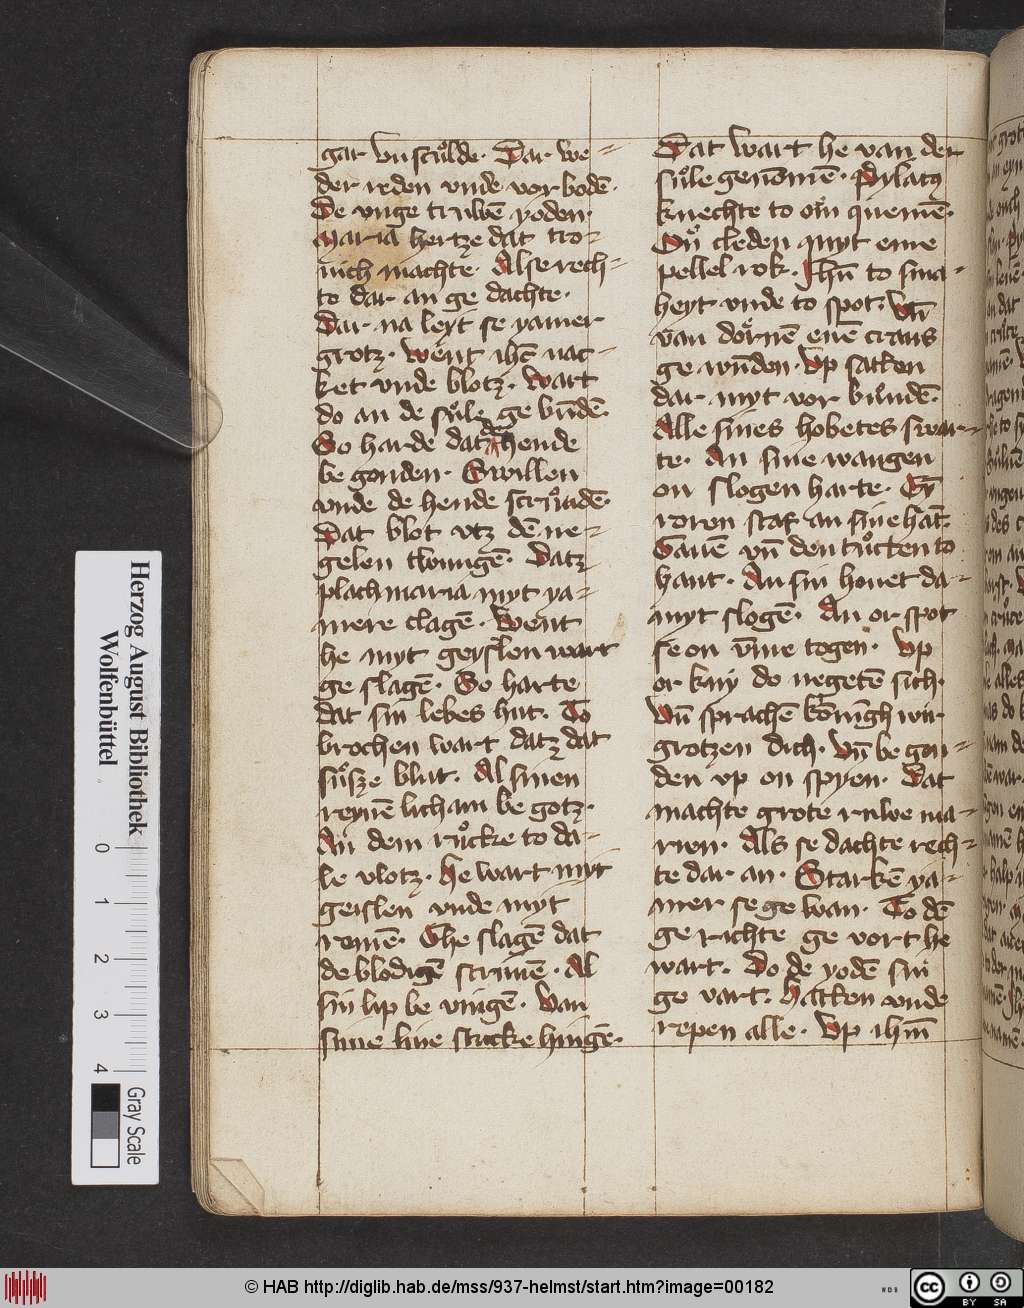 gar vnsculde. Dar we-
der reden vnde vor bodē.
De vnge truwē yoden.
maria hertze dat tro-
nich machte. Alse rech-
to dar an ge dachte.
Dar na leyt se yamer
grotz. went ihc nac-
ket vnde blotz. wart
do an de sůle ge būdē.
So harde dat da hende
be gonden. Swillen
vnde de hende
Dat blot vtz dē ne-
gelen Datz
plach maria myt ya-
mere clagē. Went
he myt geyslen wart
ge slagē. So harte
dat sin lebes hut. To
brochen wart datz dat
sůsze blut. Al sinen
reynē licham be gotz.
An dem růcke to da-
le vlotz. he wart myt
geislen vnde myt
remē. The slagē dat
de blodigē strimē. Al
sin lip be vingē. Van
sime live stucke hingē.
Dat wart he van der
sůle genomē. pylatꝫ
knechte to om quemē.
On cleden myt eme
pellel rok. Jhū to sma-
heyt vnde to spot. Vn̄
van dörnē enē crans
ge wūden. Vp satten
dar myt vor bundē.
Alle sines hobetes swar-
te. An sine wangen
on slogen harte. Eȳ
roren staf an sine hāt.
Gauē vn̄ den to
hant. An sin houet da-
myt slogē. An or spot
se on vme togen. Vp
or kniy do negetē sich.
Vn̄ sprachē konigh wir
grotzen dich. Vn̄ be gon-
den vp on spyen. Dat
machte grote ruwe ma-
rien. Als se dachte rech-
te dar an. Starkē ya-
mer se ge wan. To dē
ge richte ge vort he
wart. Do de yodē sin
ge vart. hatten vnde
repen alle. Vp ihm̄
Herzog August Bibliothek
Wolfenbüttel
0 1 2 3 4
Gray Scale
© HAB http://diglib.hab.de/mss/937-helmst/start.htm?image=00182
WDB
cc BY SA